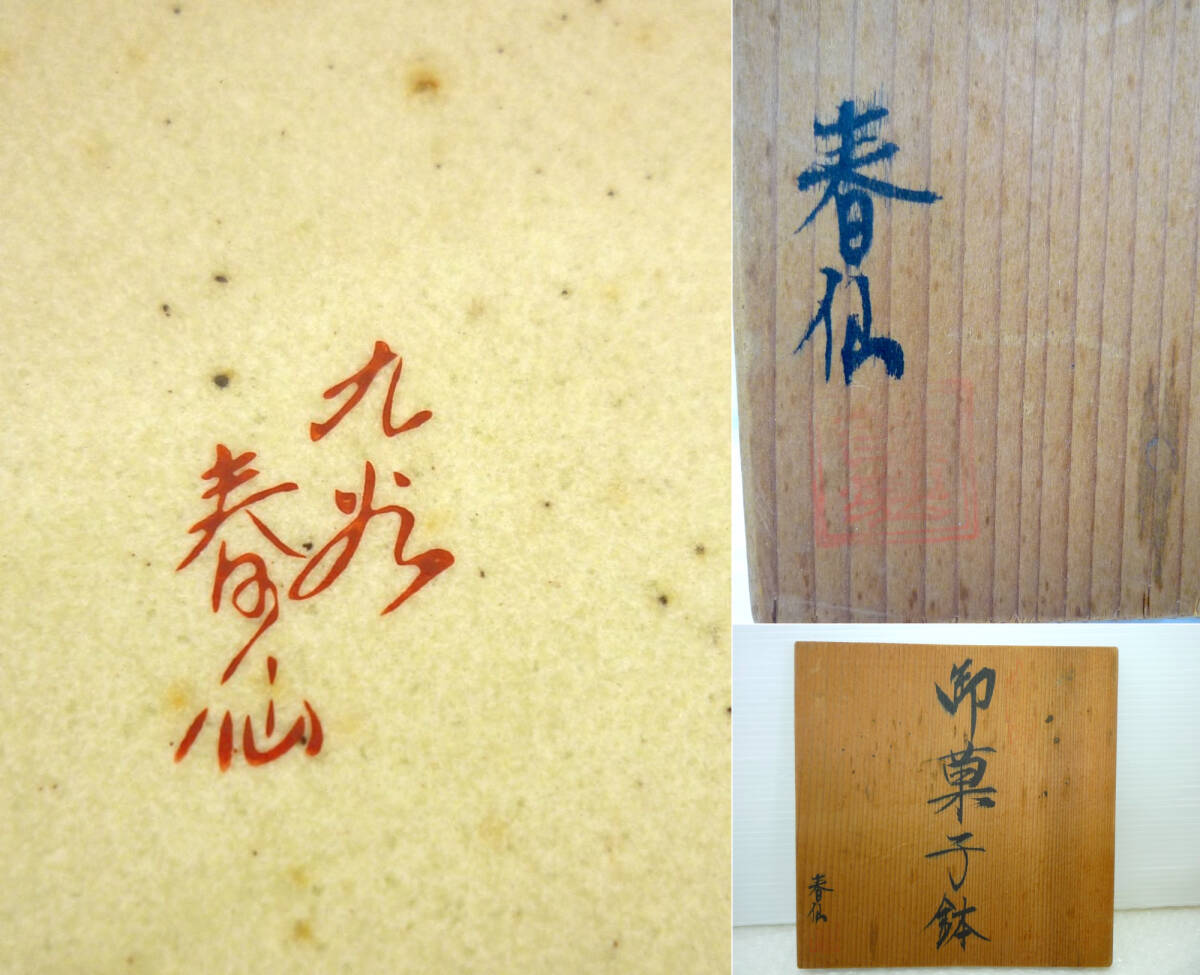 九谷
春仙
春仙
御菓子鉢
春仙